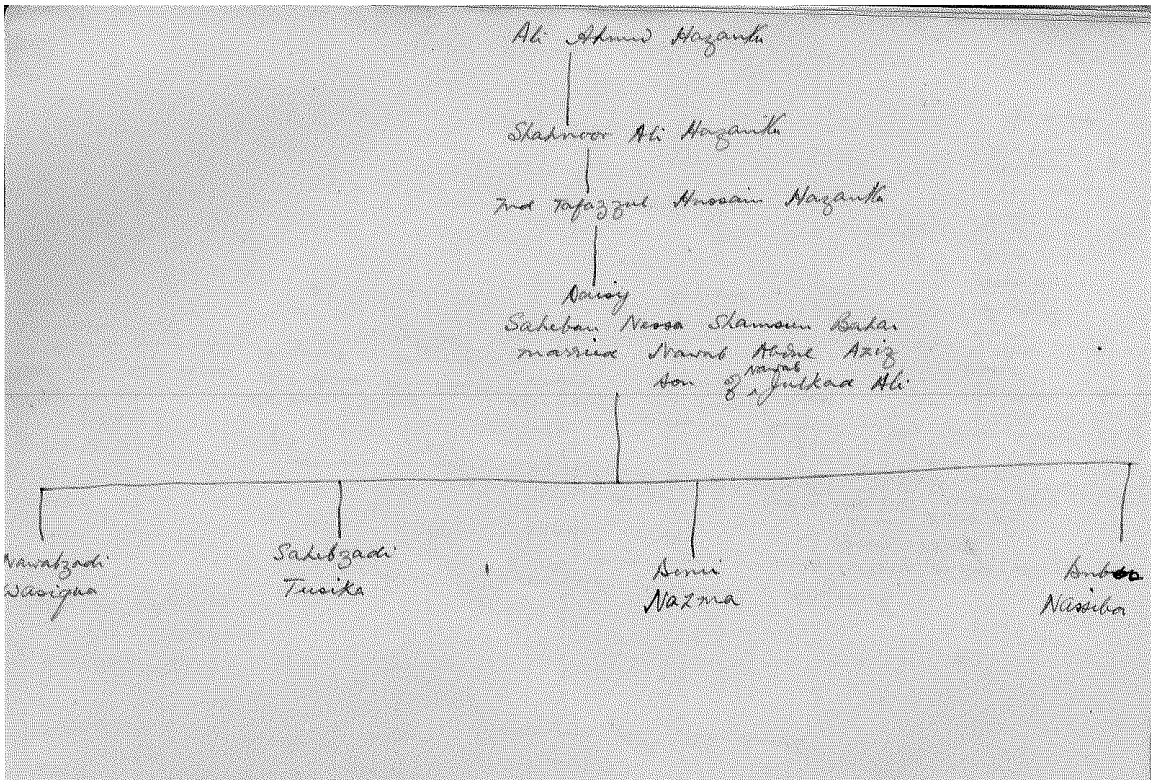 Ali Ahmed Hazarika
Shahnoor Ali Hazarika
Md Tafazzul Hussain Hazarika
Daisy
Saheban Nessa Shamsun Bahar
married Nawab Abdul Aziz
son of Nawab Julkad Ali
Nawabzadi Sahebzadi
Wasiqua Tusika Nazma Nassiba